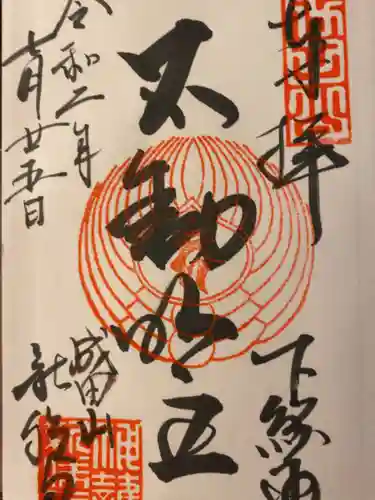 奉拝
下総国
不動明王
成田山
新勝寺
令和二年
七月廿五日